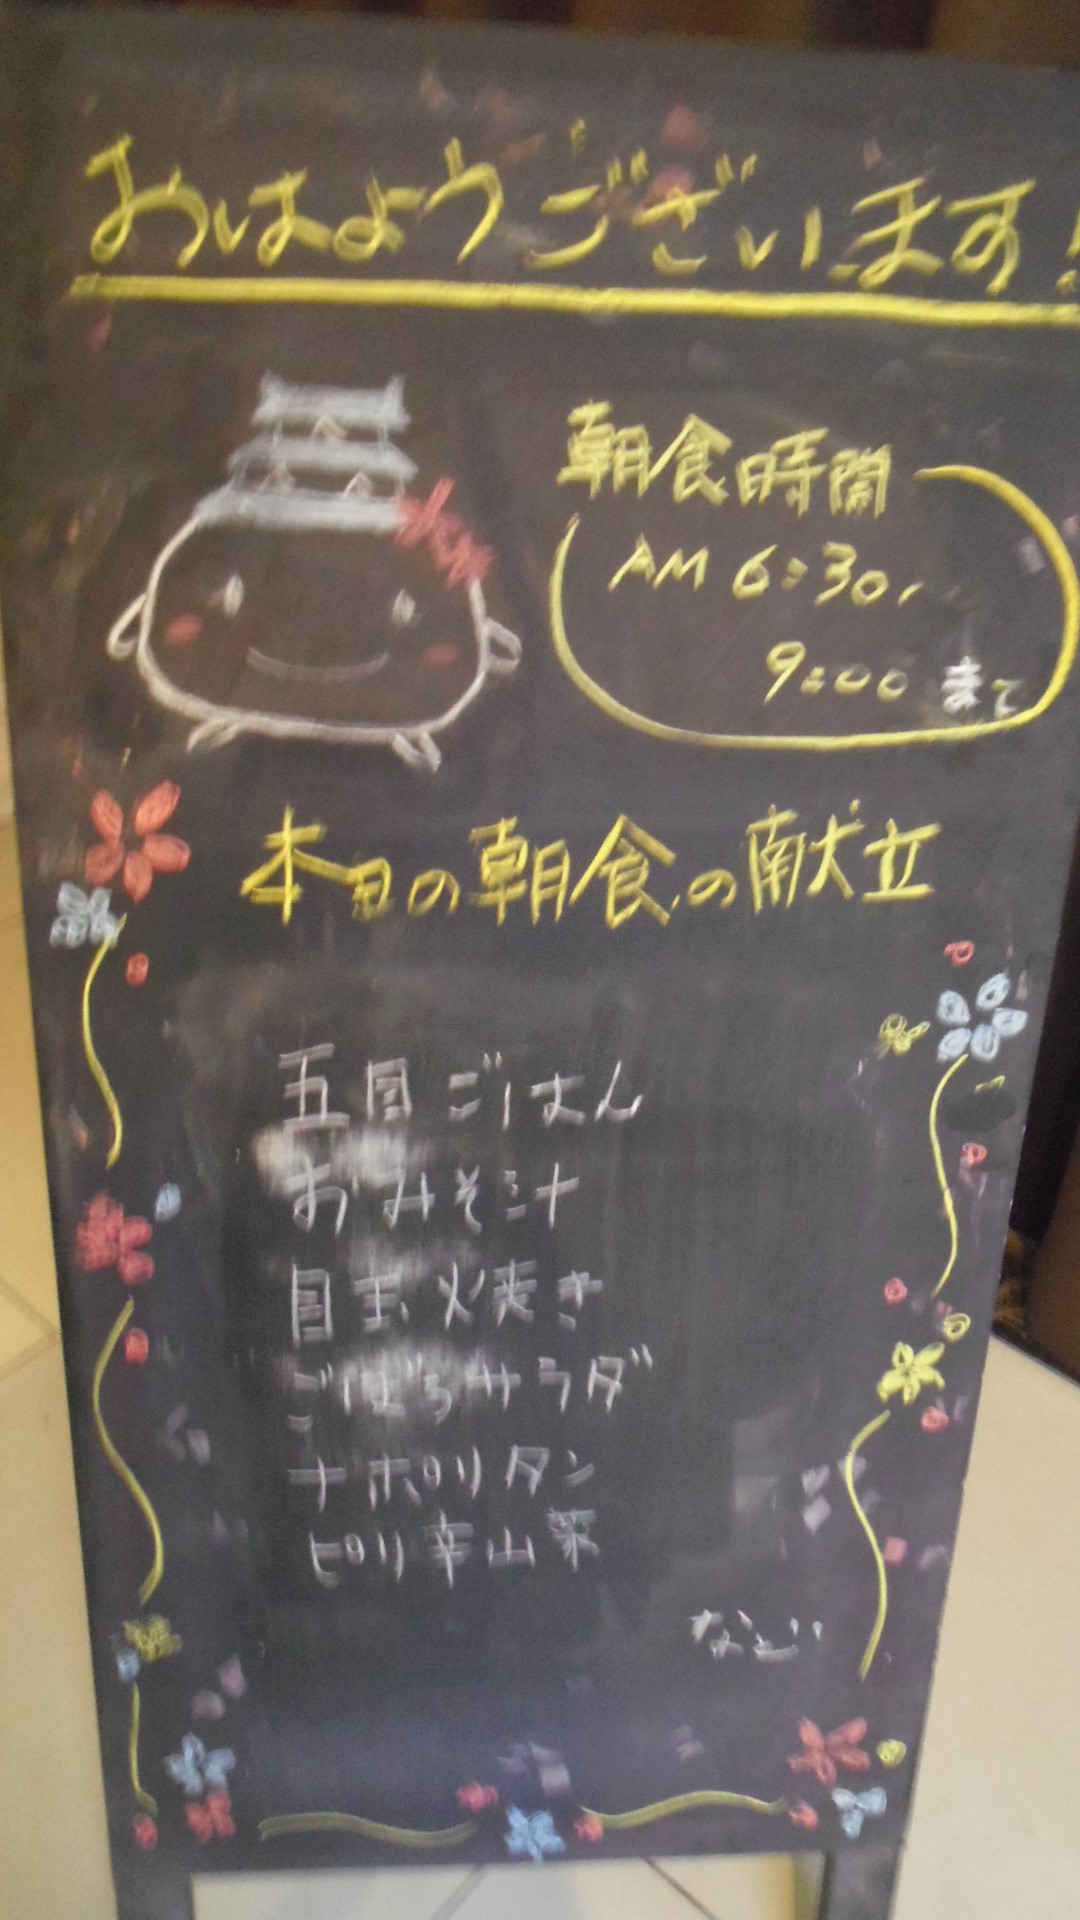 おはようございます!
朝食時間
AM 6:30〜
9:00 まで
本日の朝食の献立
五目ごはん
おみそ汁
目玉焼き
ごぼうサラダ
ナポリタン
ピリ辛山菜
など…